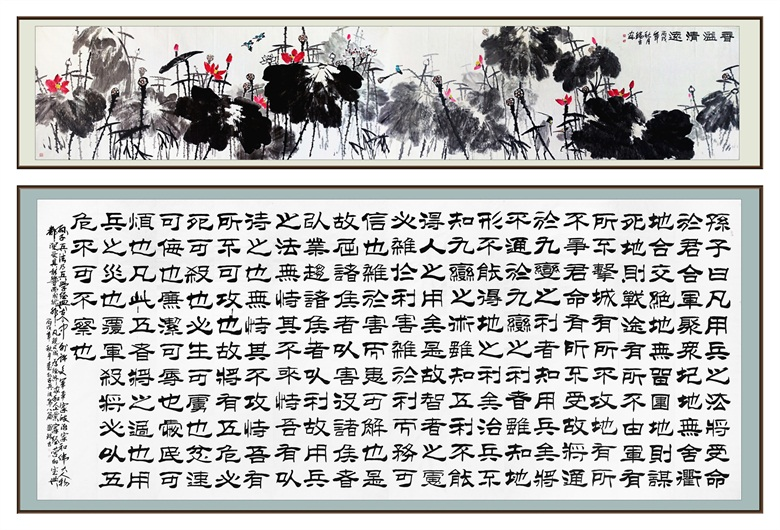 香溢清遠
孫子曰凡用兵之法將受命
於君合軍聚眾圮地無舍衢
地合交絕地無留圍地則謀
死地則戰途有所不由軍有
所不擊城有所不攻地有所
不爭君命有所不受故將通
於九變之利者知用兵矣將
不通於九變之利者雖知地
形不能得地之利矣治兵不
知九變之術雖知五利不能
得人之用矣是故智者之慮
必雜於利害雜於利而務可
信也雜於害而患可解也是
故屈諸侯者以害役諸侯者
以業趨諸侯者以利故用兵
之法無恃其不來恃吾有以
待之也無恃其不攻恃吾有
所不可攻也故將有五危必
死可殺也必生可虜也忿速
可侮也廉潔可辱也愛民可
煩也凡此五者將之過也用
兵之災也覆軍殺將必以五
危不可不察也